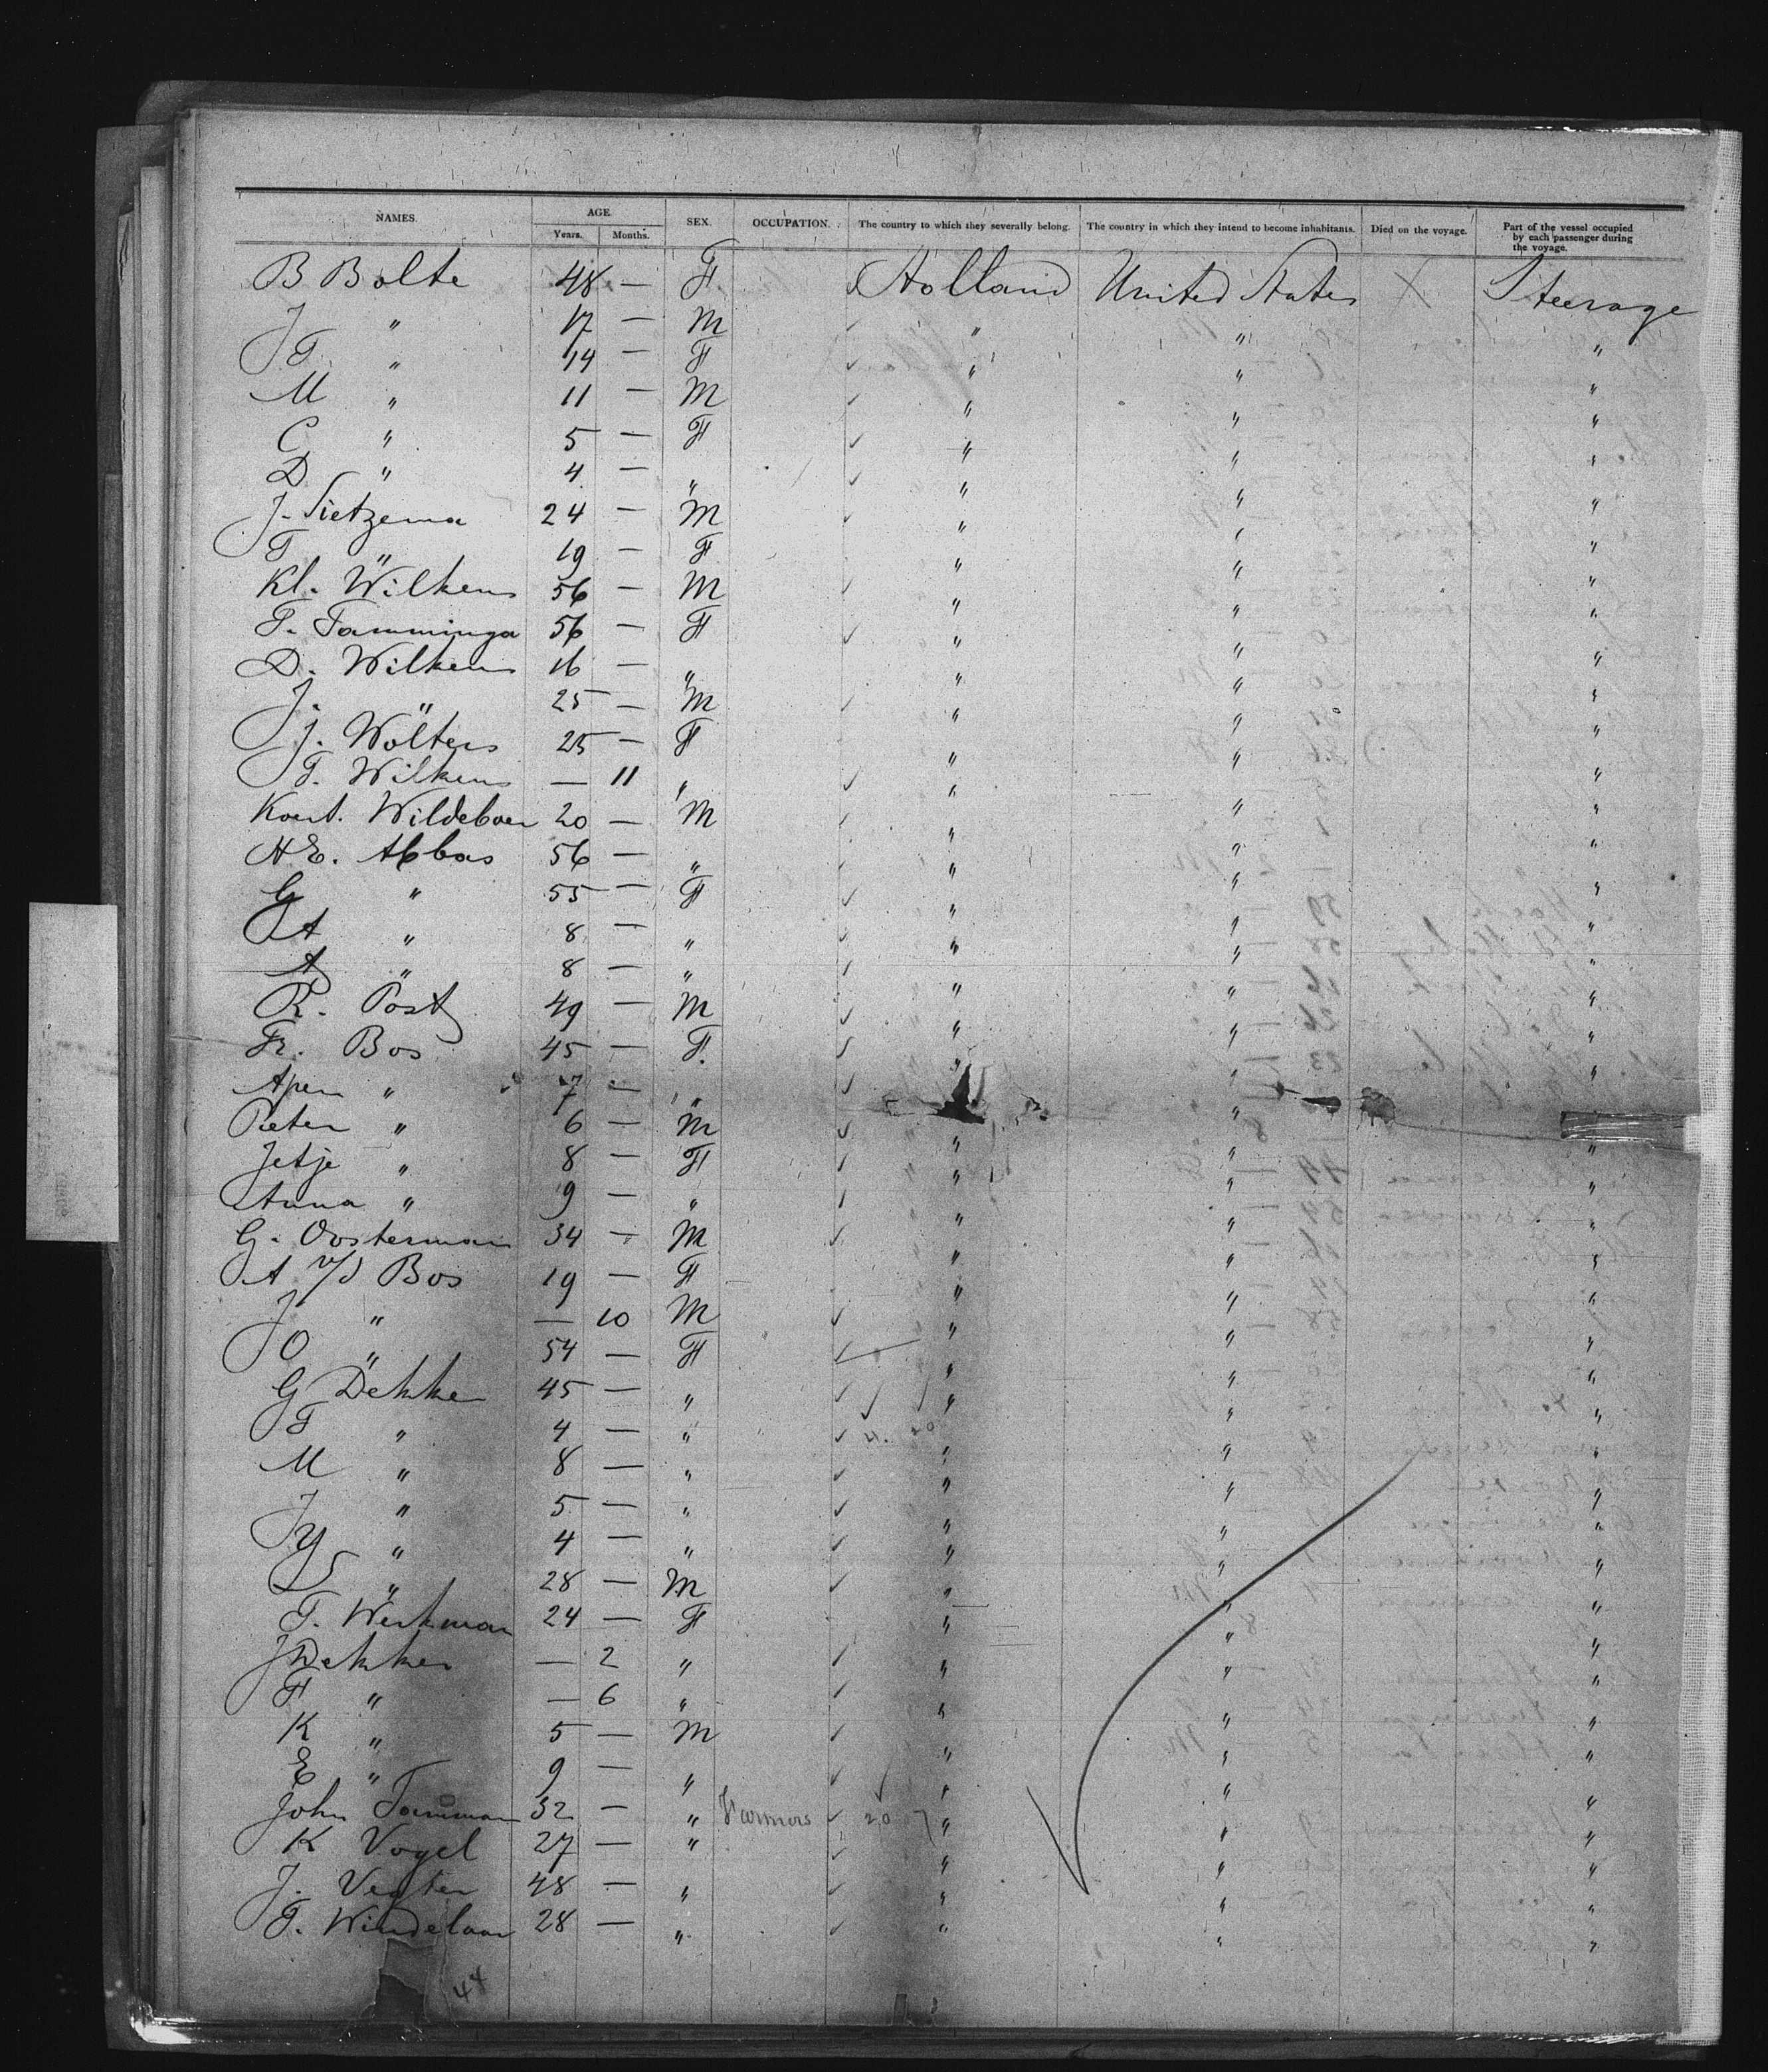 NAMES. AGE. SEX. OCCUPATION. The country to which they severally belong. The country in which they intend to become inhabitants. Died on the voyage. Part of the vessel occupied by each passenger during the voyage.
Years. Months.
B Bolte 48 — F Holland United States Steerage
J " 17 — M " " "
T " 14 — F " " "
M " 11 — M " " "
G " 5 — F " " "
D " 4 — " " " "
J. Sietzema 24 — M " " "
T " 19 — F " " "
Kl. Wilkens 56 — M " " "
T. Tamminga 56 — F " " "
D. Wilkens 16 — " " " "
J. " 25 — M " " "
J. Wolters 25 — F " " "
T. Wilkens — 11 " " " "
Koert. Wildeboer 20 — M " " "
HE. Abbas 56 — " " " "
G " 55 — F " " "
A " 8 — " " " "
A " 8 — " " " "
R. Post 49 — M " " "
Fr. Bos 45 — F. " " "
" 7 — " " " "
Pieter " 6 — M " " "
Jetje " 8 — F " " "
Anna " 9 — " " " "
G. Oosterman 34 — M " " "
A v/d Bos 19 — F " " "
J " — 10 M " " "
O " 54 — F " " "
G Dekker 45 — " " " "
F " 4 — " " " "
M " 8 — " " " "
J " 5 — " " " "
Y " 4 — " " " "
S " 28 — M " " "
T. Werkman 24 — F " " "
J Dekker — 2 " " " "
F " — 6 " " " "
K " 5 — M " " "
E " 9 — " " " "
John 32 — " Farmers 20 " " "
K Vogel 27 — " " " "
J. Vegter 48 — " " " "
T. Windelaar 28 — " " " "
44